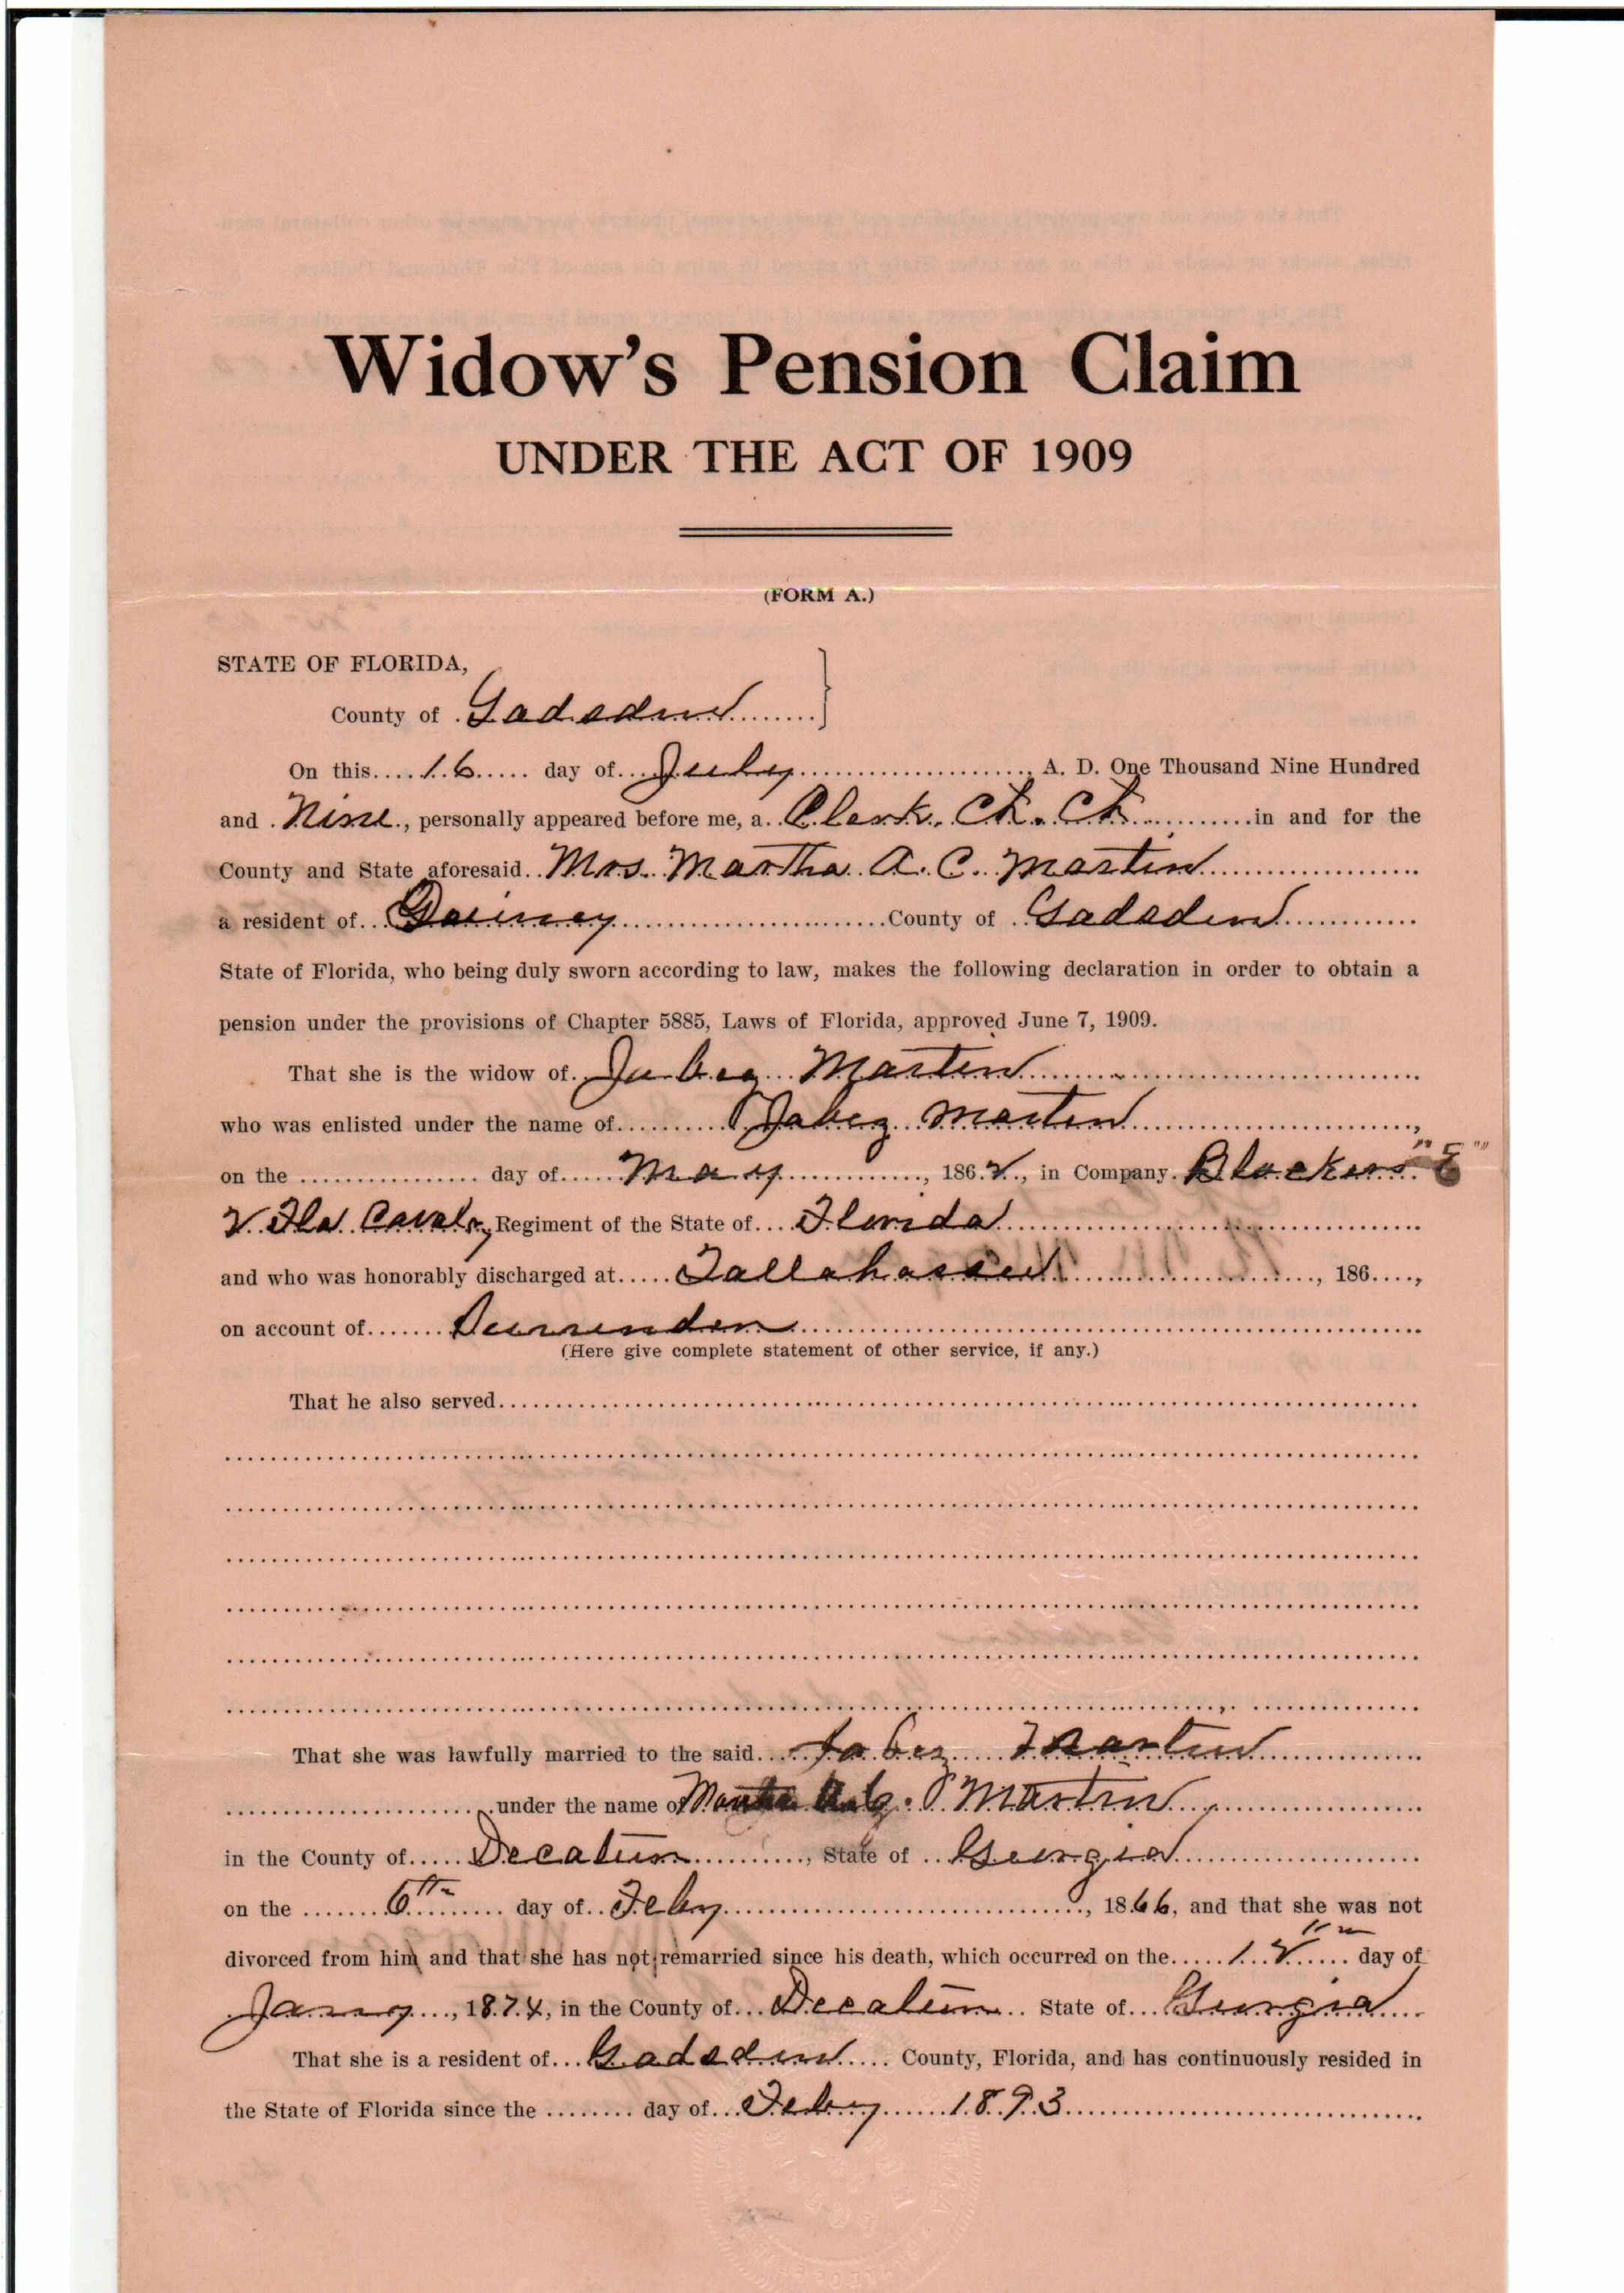 Widow's Pension Claim
UNDER THE ACT OF 1909
(FORM A.)
STATE OF FLORIDA,
County of Gadsden
On this 16 day of July, A. D. One Thousand Nine Hundred
and Nine, personally appeared before me, a Clerk. Ct. Ct in and for the
County and State aforesaid Mrs. Martha A. C. Martin
a resident of County of Gadsden
State of Florida, who being duly sworn according to law, makes the following declaration in order to obtain a
pension under the provisions of Chapter 5885, Laws of Florida, approved June 7, 1909.
That she is the widow of Jabez Martin
who was enlisted under the name of Jabez Martin,
on the day of May, 1862, in Company Blockers "E"
2 Fla Cavalry Regiment of the State of Florida
and who was honorably discharged at Tallahassee, 186,
on account of Surrender
(Here give complete statement of other service, if any.)
That he also served
That she was lawfully married to the said Jabez Martin
under the name of Martha Martin
in the County of Decatur, State of Georgia
on the 6th day of Feby, 1866, and that she was not
divorced from him and that she has not remarried since his death, which occurred on the 12th day of
Jany, 187, in the County of Decatur State of Georgia
That she is a resident of Gadsden County, Florida, and has continuously resided in
the State of Florida since the day of Feby 1893